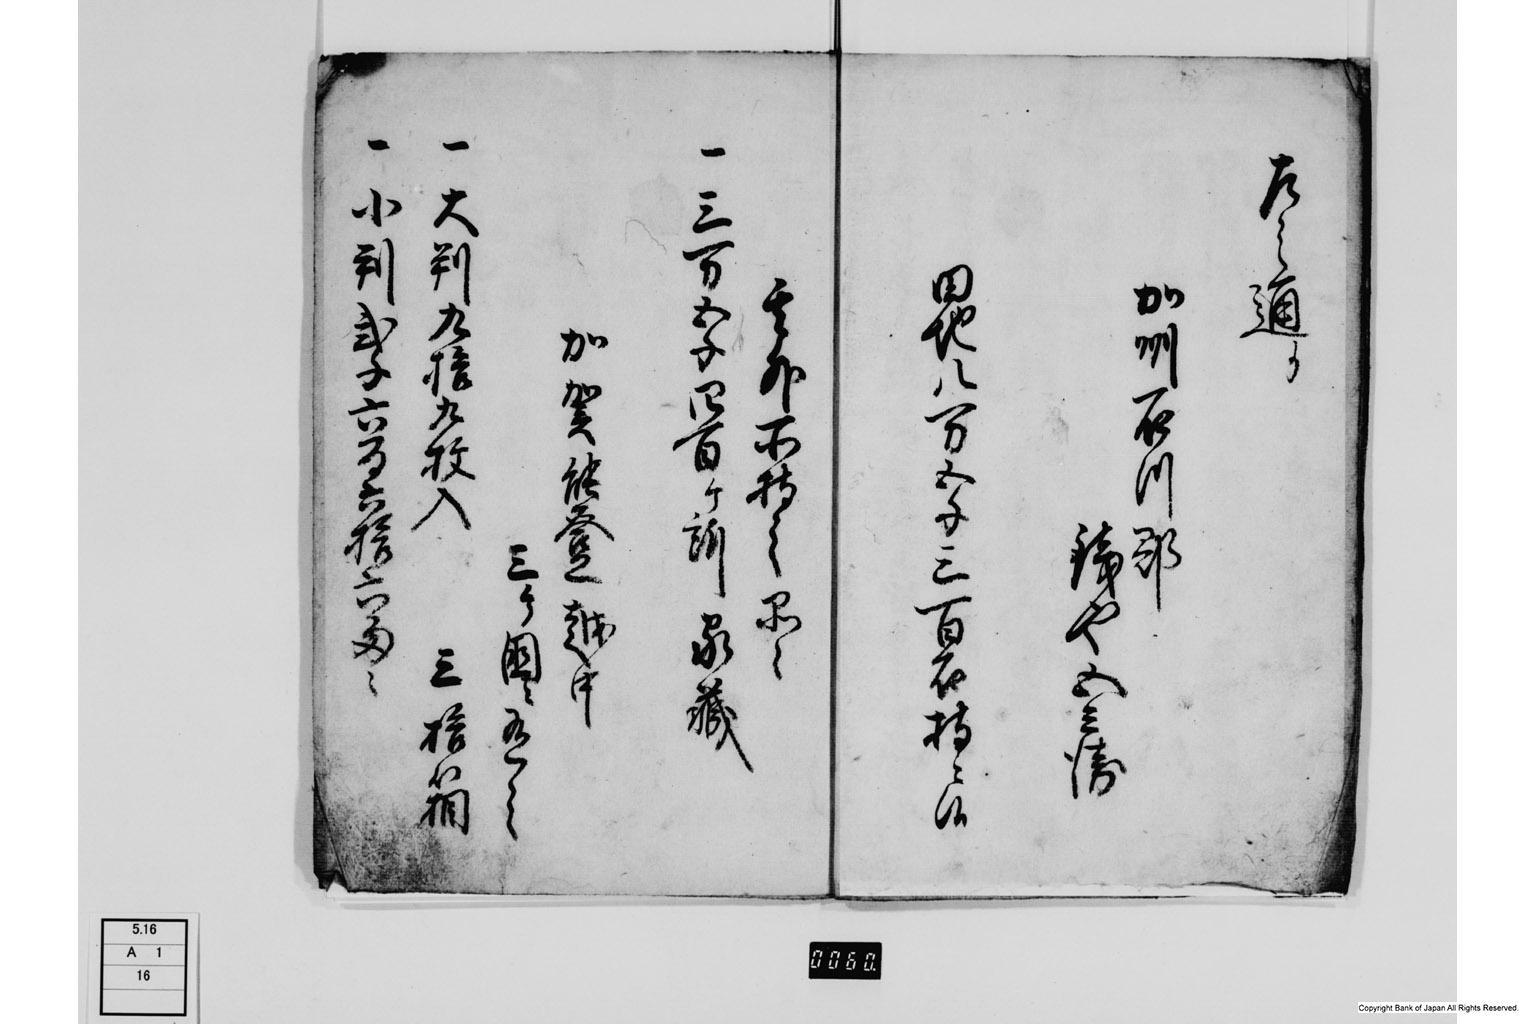 左之通り
加州石川郡
銭や五兵衛
田地八万五千三百石持主
其外所持之品々
一 三万五千四百ヶ所 家蔵
加賀能登越中
三ヶ国ニ有之
一 大判九拾九枚入 三拾箱
一 小判弐千六百六拾六両ニ
5.16
A 1
16
0060.
Copyright Bank of Japan All Rights Reserved.